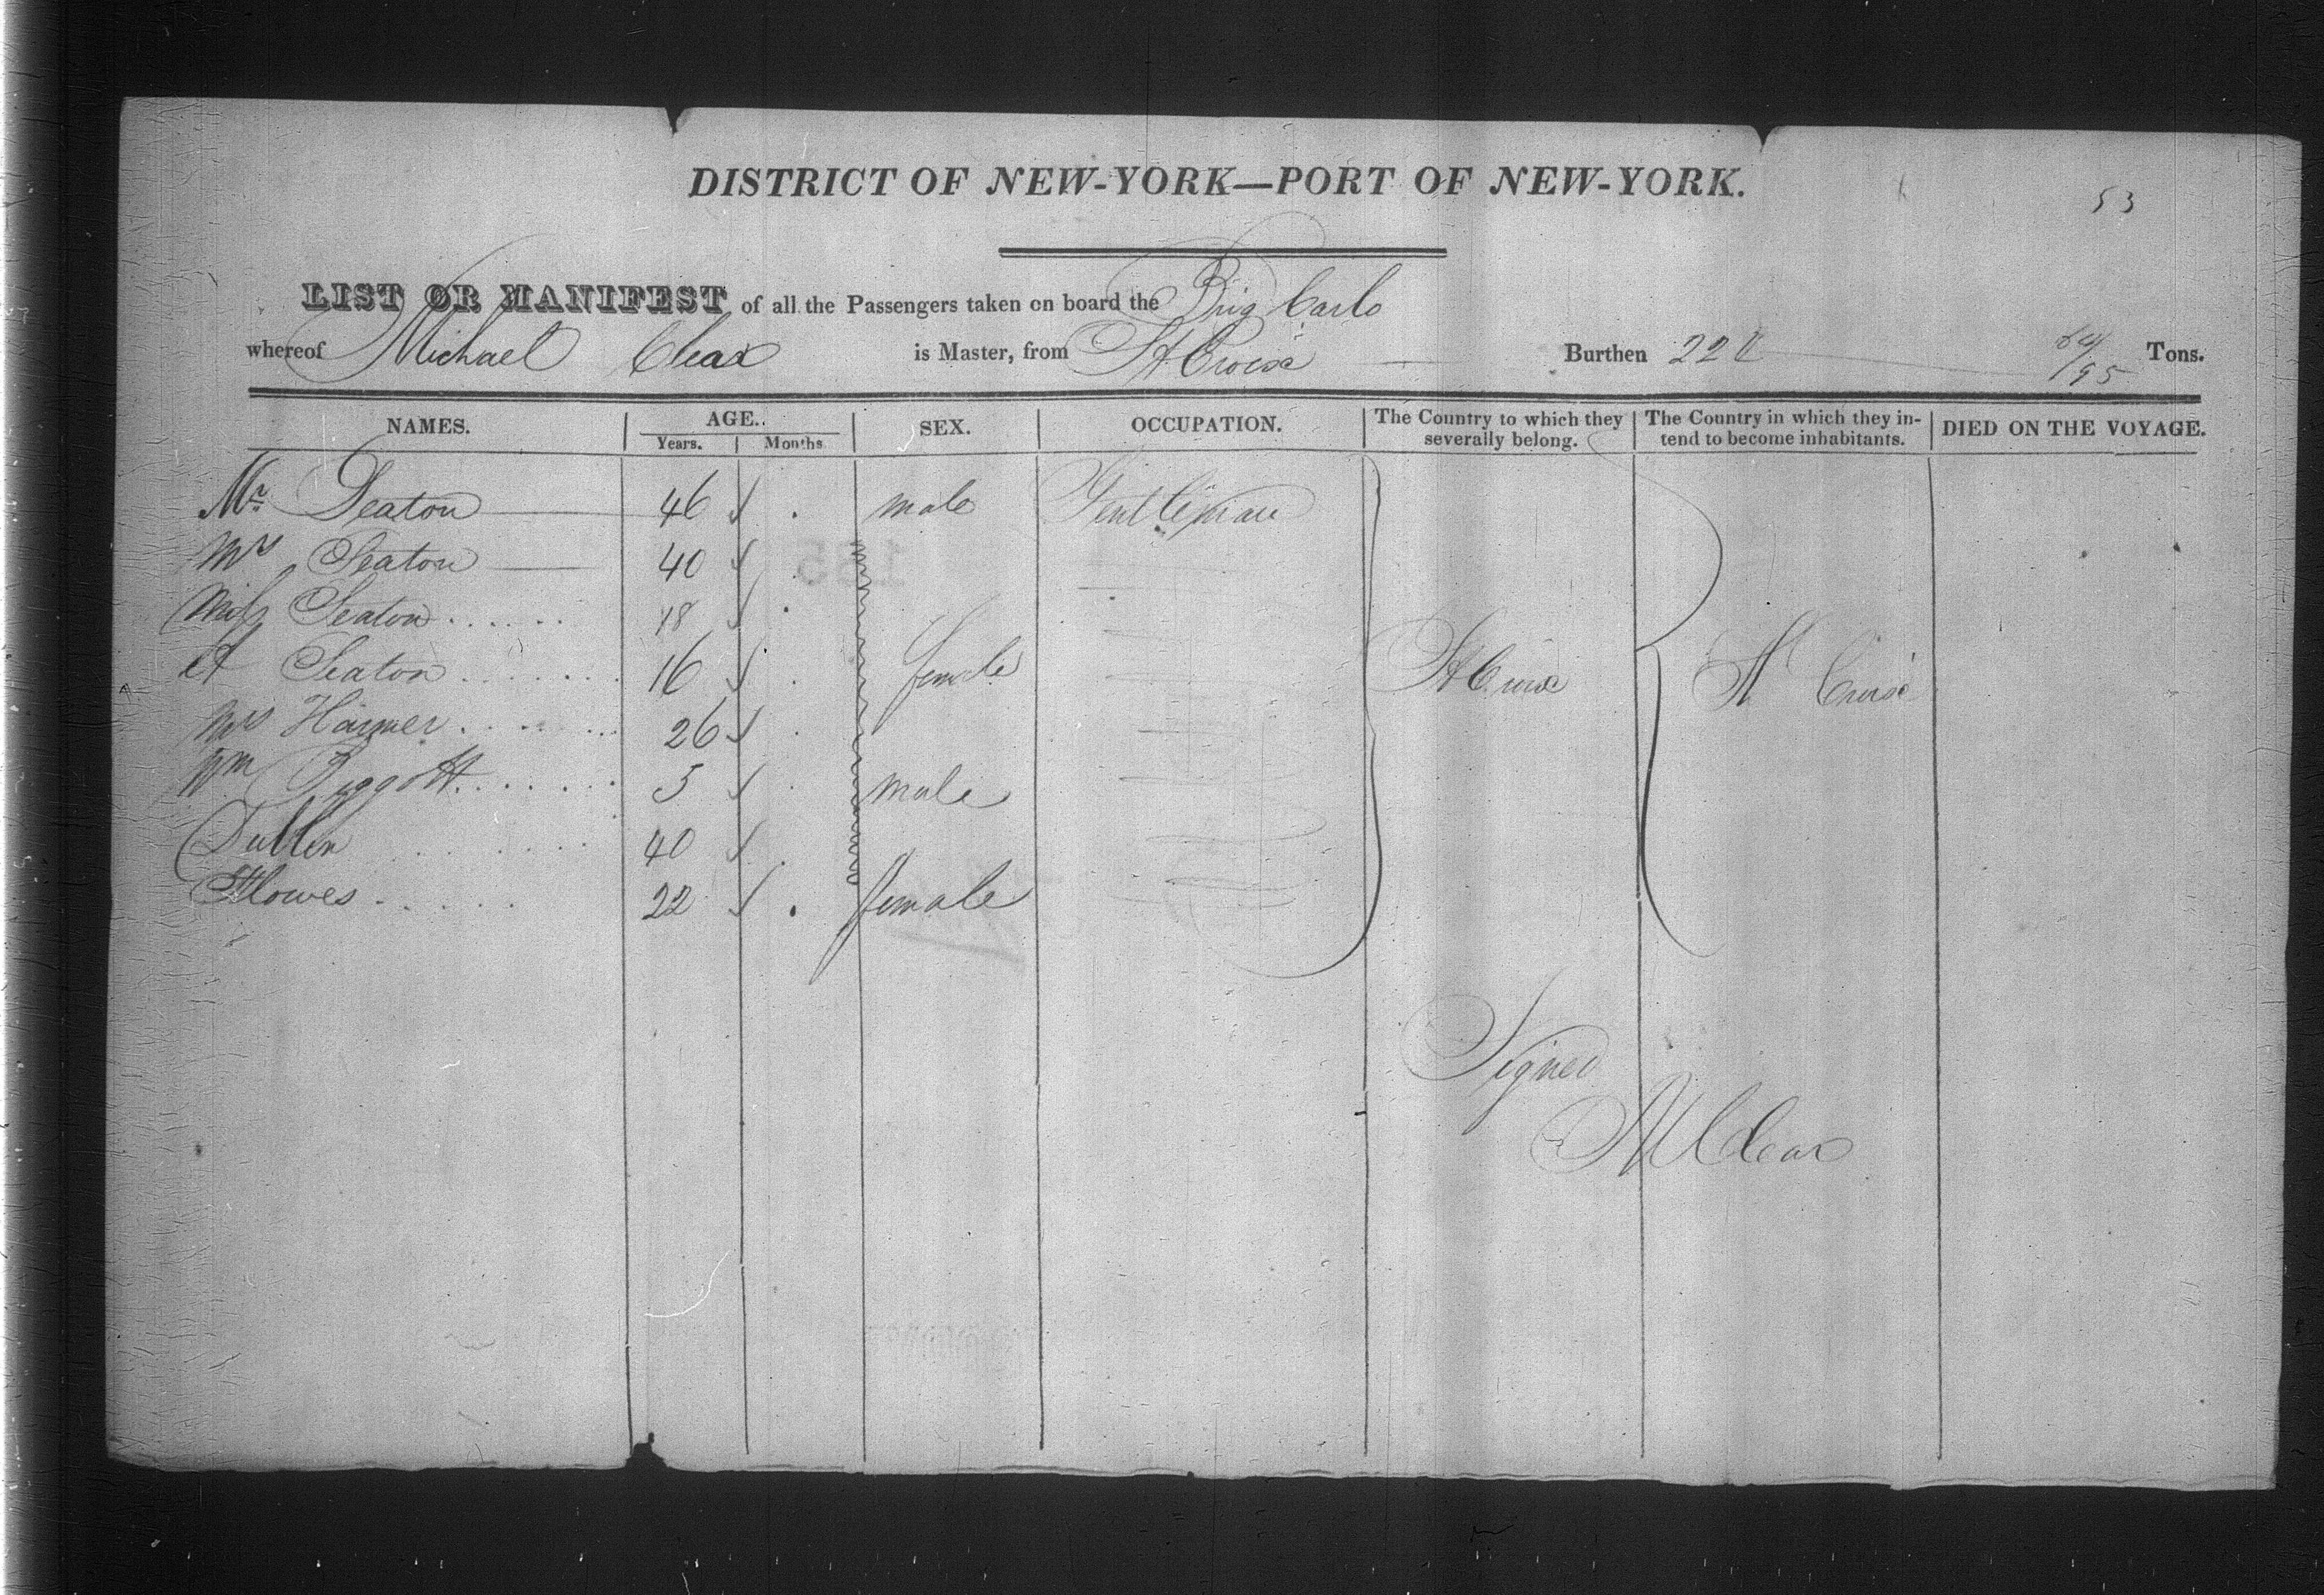 53
DISTRICT OF NEW-YORK—PORT OF NEW-YORK.
LIST OR MANIFEST of all the Passengers taken on board the Brig Carlo
whereof Michael Clear is Master, from St Croix Burthen 22 84/95 Tons.
NAMES. AGE. SEX. OCCUPATION. The Country to which they severally belong. The Country in which they intend to become inhabitants. DIED ON THE VOYAGE.
Years. Months
Mr Seaton 46 male Gentleman
Mrs Seaton 40
Miss Seaton 18
A Seaton 16 female St Croix St Croix
Mrs Harmer 26
Wm Piggott 5 male
Dublin 40
Flowes 22 female
Signed
M Clear